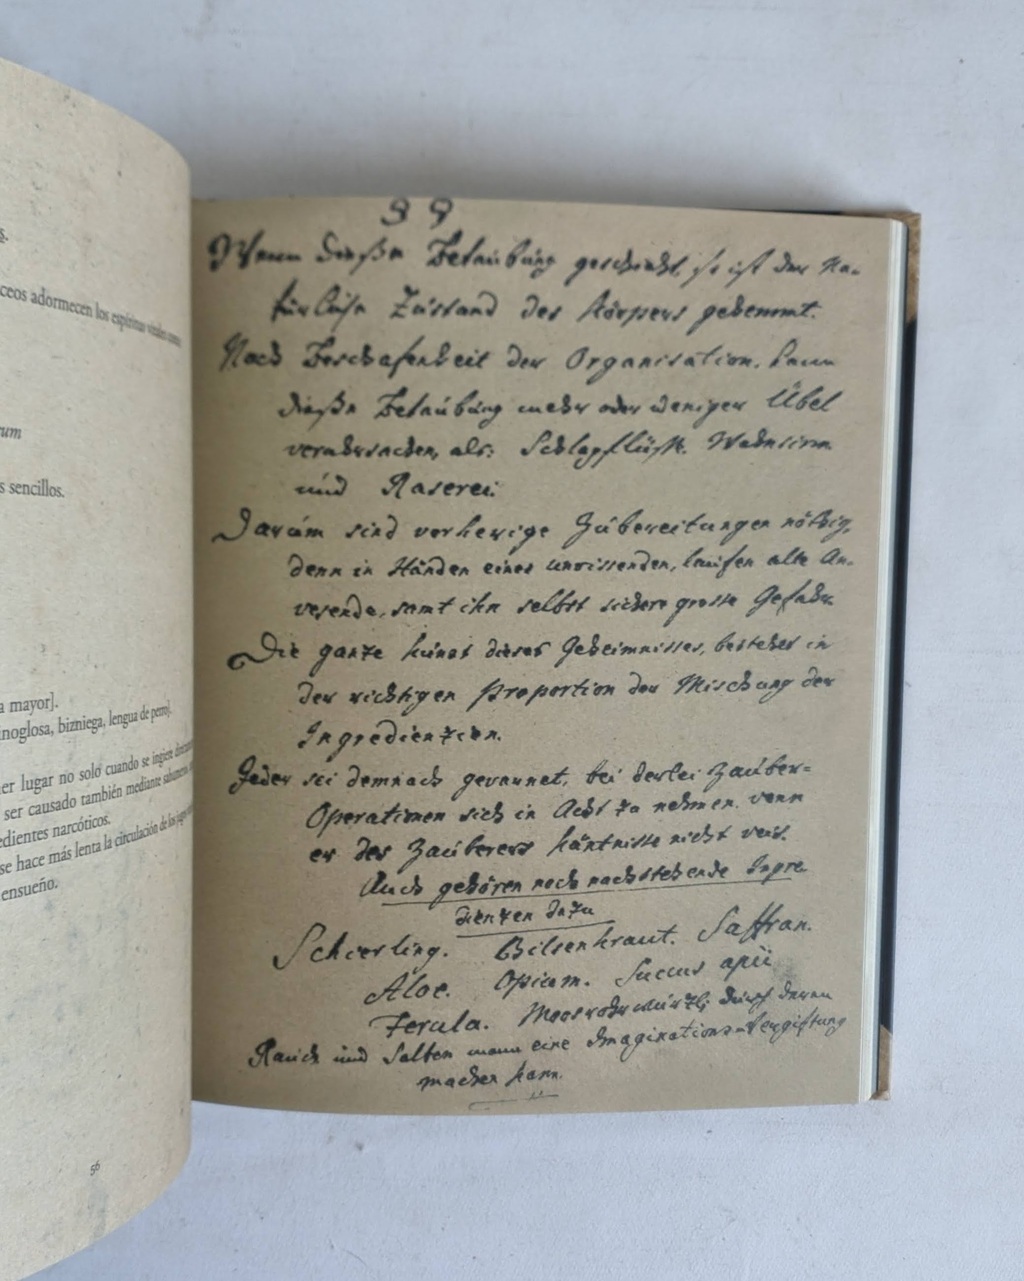 s.
ceos adormecen los espíritus vitales
um
s sencillos.
a mayor].
inoglosa, bizniega, lengua de perro].
er lugar no solo cuando se ingiere
ser causado también mediante
edientes narcóticos.
se hace más lenta la circulación de los
ensueño.
56
39
Wenn dieße Betaübung geschieht, so ist der Na-
türliche Zustand des Körpers gehemmt.
Nach Beschafenheit der Organisation, kann
dieße Betaübung mehr oder weniger Übel
veruhrsachen, als: Schlagflüsse. Wahnsinn
und Raserei.
Darum sind vorherige Zubereitungen nöthig,
denn in Händen eines unwissenden, laufen alle An-
wesende, samt ihn selbst sichere grosse Gefahr.
Die ganze Kunst dieses Geheimnisses, bestehet in
der richtigen Proportion der Mischung der
Ingredienzien.
Jeder sei demnach gewarnet, bei derlei Zauber=
Operationen sich in Acht zu nehmen, wenn
er des Zauberers käntnisse nicht weis.
Auch gehören noch nachstehende Ingre
dienzen dazu
Schierling. Bilsenkraut. Saffran.
Aloe. Opium. Succus apii
Ferula. Moosrohrwurzl; durch deren
Rauch und Salben mann eine Imaginations-Vergiftung
machen kann.